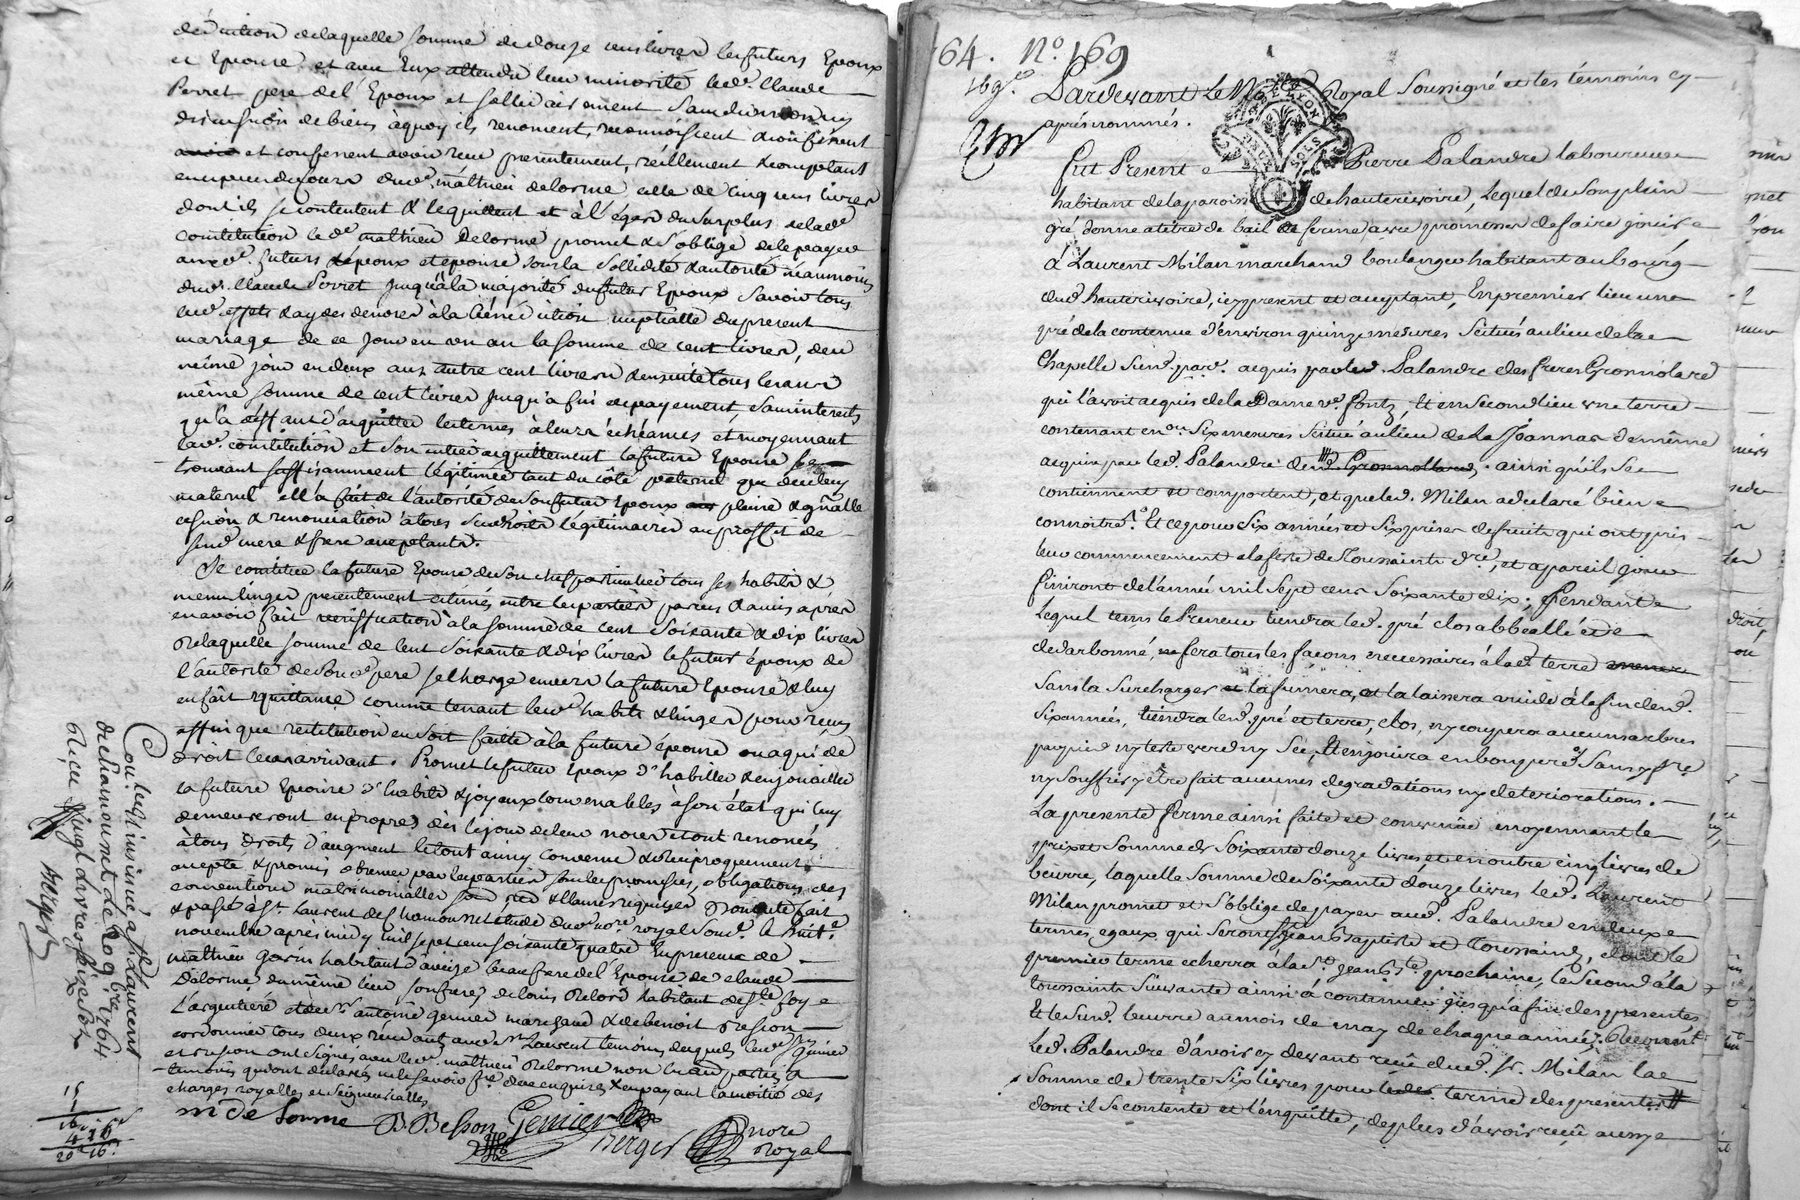 déduction delaquelle somme de douze cens livres les futurs Epoux
et Epouse et avec Eux attendu leur minorité led. Claude
Perret pere del'Epoux et sollidairement sans division ny
discussion de biens àquoy ils renoncent, reconnoissent
et confessent avoir reçu presentement, réellement & comptant
en especes de cours dud. mathieu delorme, celle de cinq cens livres
dont ils se contentent & le quittent et à l'égard du surplus de lad.
constitution le d. mathieu Delorme promet & s'oblige de le payer
auxd. futurs époux et epouse sous la sollidité & autorité néanmoins
dud. Claude Perret jusqu'àla majorité du futur Epoux savoir tous
lesd. effets & aydes denoces à la bénédiction nuptialle du present
mariage de ce jour en un an la somme de cent livres, dud.
même jour en deux ans autre cent livres & ensuite tous les ans
même somme de cent livres jusqu'a fin de payement, sans interests
qu'a deffaut d'acquitter les termes à leurs échéances et moyennant
lad. constitution et son entier acquittement la future Epouse se
trouvant suffisamment légitimée tant du côté paternel que de celuy
maternel elle a fait de l'autorité de son futur époux pleine & gñalle
cession & renonciation à tous ses droits légitimaires au proffit de
send. mere & frere acceptants.
Se constitue la future Epouse de son chef particulier tous ses habits &
menu linges presentement estimés entre les parties parens & amis après
en avoir fait veriffication à la somme de cent soixante & dix livres
De laquelle somme de cent soixante & dix livres le futur époux de
l'autorité de sond. pere se charge envers la future Epouse & luy
en fait quittance comme tenant lesd. habits & linges pour reçus
affin que restitution en soit faitte à la future épouse ou a qui de
droit le cas arrivant. Promet le futur Epoux d'habiller & enjoailler
la future Epouse d'habits & joyaux convenables à son état qui luy
demeureront en propres dès le jour de leur noces et ont renoncés
à tous droits d'augment le tout ainsy convenu & réciproquement
accepté & promis observer par les parties sous les promesses, obligations, des
conventions matrimonialles
& passé à St. Laurent de Chamousset étude dud. no.re royal sous.é le huit.e
novembre après midy mil sept cens soixante quatre En presence de
mathieu Garin habitant d'aveize beaufrere del'Epouse de claude
Delorme du même lieu son frere, de louis Delorme habitant de ste foy
L'argentiere & de sr. antoine genier marchand & de benoit Besson
cordonnier tous deux résidants aud. St. Laurent temoins desquels lesd. srs. Genier
et Besson ont signés avec led. mathieu Delorme non les autres parties &
temoins qui ont déclarés ne le savoir f.re de ce enquis & en payant la moitié des
charges royalles et seigneurialles
m De Lorme B Besson Genier
Berger nore Royal
Controllé & insinué à St. Laurent
de chamousset le 20 9bre 1764
Reçu vingt livres seize sols
Berger
15
1
16
4 16
20 16
764. No. 169
169e
Pardevant le No Royal Soussigné et les témoins cy
aprés nommés.
Fut Present Pierre Palandre laboureur
habitant de la paroisse de hauterivoire, Lequel de son plein
gré donne a titre de bail de ferme avec promesse de faire jouir
à Laurent Milan marchand boulanger habitant au bourg
dud. hauterivoire, icy present et acceptant, En premier lieu une
pré de la contenue d'environ quinze mesures Scitué au lieu de la
Chapelle Susd. par. acquis par led. Palandre des freres Gromolard
qui l'avoit acquis de la Dame ve. fontz, Et en second lieu une terre
contenant en.on six mesures Scitué au lieu de Lassjoannas de même
acquise par led. Palandre desd. Gromollard. ainsi qu'ils se
contiennent et comportent, et que led. Milan a declaré bien
connoitre. Et ce pour six années et six prises de fruits qui ont pris
leur commencement a la feste de Toussaints d.re, et a pareil jour
finiront de l'année mil sept cens soixante dix; Pendant
lequel tems le Preneur tiendra led. pré clos abbeallé et
dedarbonné, fera tous les façons necessaires à lad. terre
sans la surcharger la fumera, et la laissera vuide à la fin desd.
six années, tiendra lesd. pré et terre, clos, ny coupera aucuns arbres
par pied ny teste verd ny Sec, Et en jouira en bon pere Sans y f.re
ny souffrir y être fait aucunes degradations ny deteriorations.
La presente ferme ainsi faite et convenüe moyennant le
prix et somme de soixante douze livres et en outre cinq livres de
beurre, laquelle somme de soixante douze livres led. Laurent
Milan promet et s'oblige de payer aud. Palandre en deux
termes egaux qui seront St Jean Baptiste et Toussaint, dont le
premier terme echerra à la St. Jean Bte. prochaine, le second à la
toussaints suivante ainsi à continuer jusqu'a fin des presentes
Et le susd. beurre au mois de may de chaque année; Reconnoit
led. Palandre d'avoir cy devant reçû dud. Sr. Milan la
somme de trente six livres pour terme des presentes
dont il se contente et l'en quitte, de plus d'avoir reçu aussy